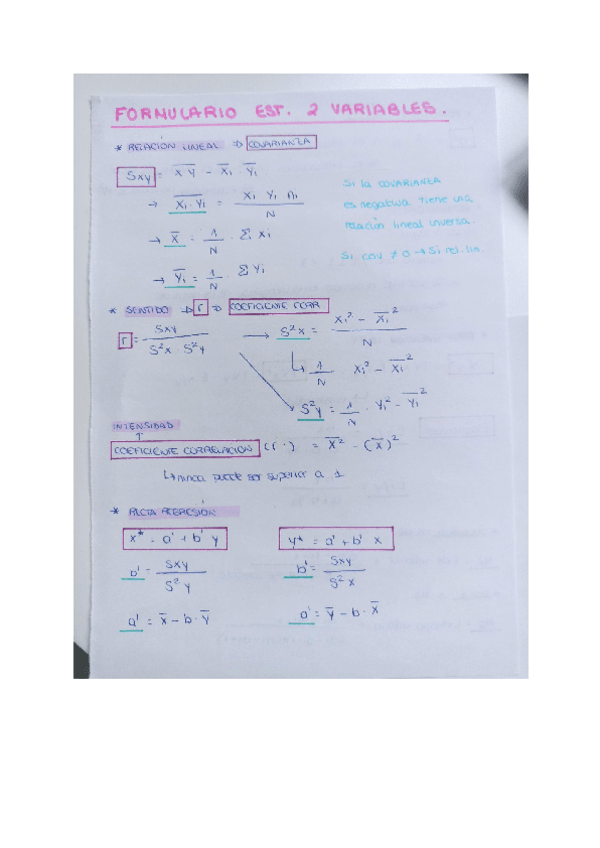 FORMULARIO EST. 2 VARIABLES.
* RELACIÓN LINEAL ⇒ COVARIANZA
Sxy = x̅y̅ - x̅ᵢ · y̅ᵢ
→ x̅ᵢ · y̅ᵢ = xᵢ yᵢ nᵢ / N
→ x̅ = 1/N · Σ xᵢ
→ y̅ᵢ = 1/N · Σ yᵢ
Si la COVARIANZA
es negativa tiene una
relación lineal inversa.
Si cov ≠ 0 → Si rel. lin.
* SENTIDO ⇒ r ⇒ COEFICIENTE CORR
r = Sxy / S²x · S²y → S²x = xᵢ² - x̅ᵢ² / N
↳ 1/N xᵢ² - x̅ᵢ²
S²y = 1/N · yᵢ² - y̅ᵢ²
INTENSIDAD
↑
COEFICIENTE CORRELACIÓN (r ·) = x̅² - (x̅)²
↳ nunca puede ser superior a 1
* RECTA REGRESIÓN
x* = a' + b' y
y* = a' + b' x
b' = Sxy / S²y
b' = Sxy / S²x
a' = x̅ - b · y̅
a' = y̅ - b · x̅